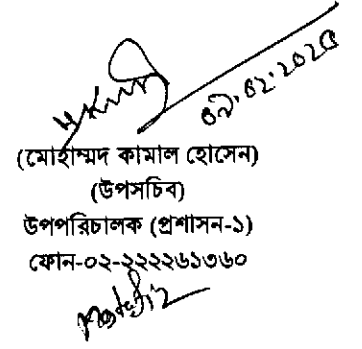 ০৯.০২.২০২৫
(মোহাম্মদ কামাল হোসেন)
(উপসচিব)
উপপরিচালক (প্রশাসন-১)
ফোন-০২-২২২২৬১৩৬০